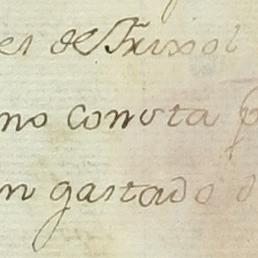 es de Frixol
mo consta p
n gastado d